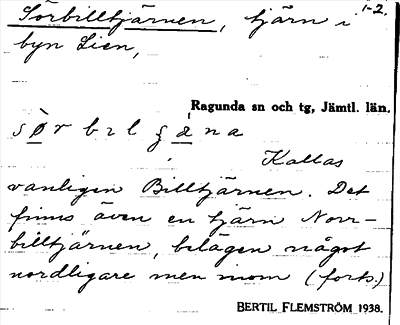 Sörbilltjärnen, tjärn i 1-2.
byn Lien,
Ragunda sn och tg, Jämtl. län.
sø̀r bɪl ʂæ̀na
Kallas
vanligen Billtjärnen. Det
finns även en tjärn Norr-
billtjärnen, belägen något
nordligare men inom (forts.)
BERTIL FLEMSTRÖM 1938.